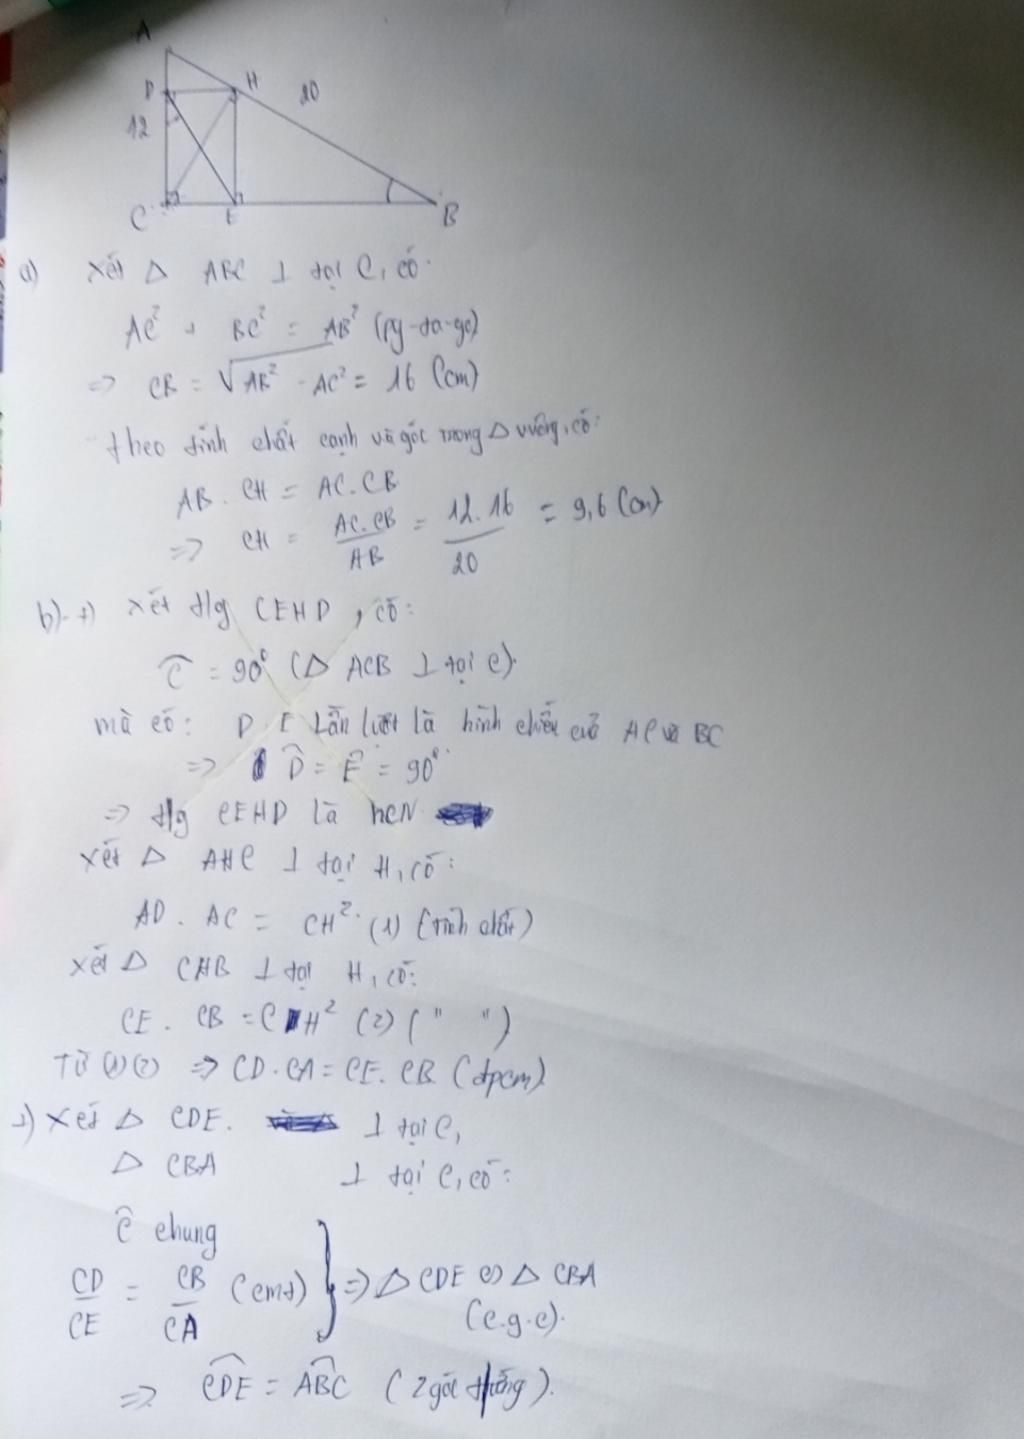 A
D
H
20
12
C
E
B
a) xét Δ ABC ⊥ tại C, có:
AC² + BC² = AB² (py-ta-go)
=> CB = √AB² - AC² = 16 (cm)
theo tính chất cạnh và góc trong Δ vuông, có:
AB . CH = AC . CB
=> CH = AC.CB / AB = 12.16 / 20 = 9,6 (cm)
b) +) xét t/g CEHD, có:
Ĉ = 90° (Δ ACB ⊥ tại C).
mà có: D, E lần lượt là hình chiếu của AC và BC
=> D̂ = Ê = 90°
=> t/g CEHD là hcN
xét Δ AHC ⊥ tại H, có:
AD . AC = CH² (1) (tính chất)
xét Δ CHB ⊥ tại H, có:
CE . CB = CH² (2) (" ")
Từ (1)(2) => CD.CA = CE.CB (đpcm)
+) xét Δ CDE ⊥ tại C,
Δ CBA ⊥ tại C, có:
Ĉ chung
CD / CE = CB / CA (cmt) } => Δ CDE ∽ Δ CBA
(c.g.c).
=> CDE = ABC (2 góc tưởng).